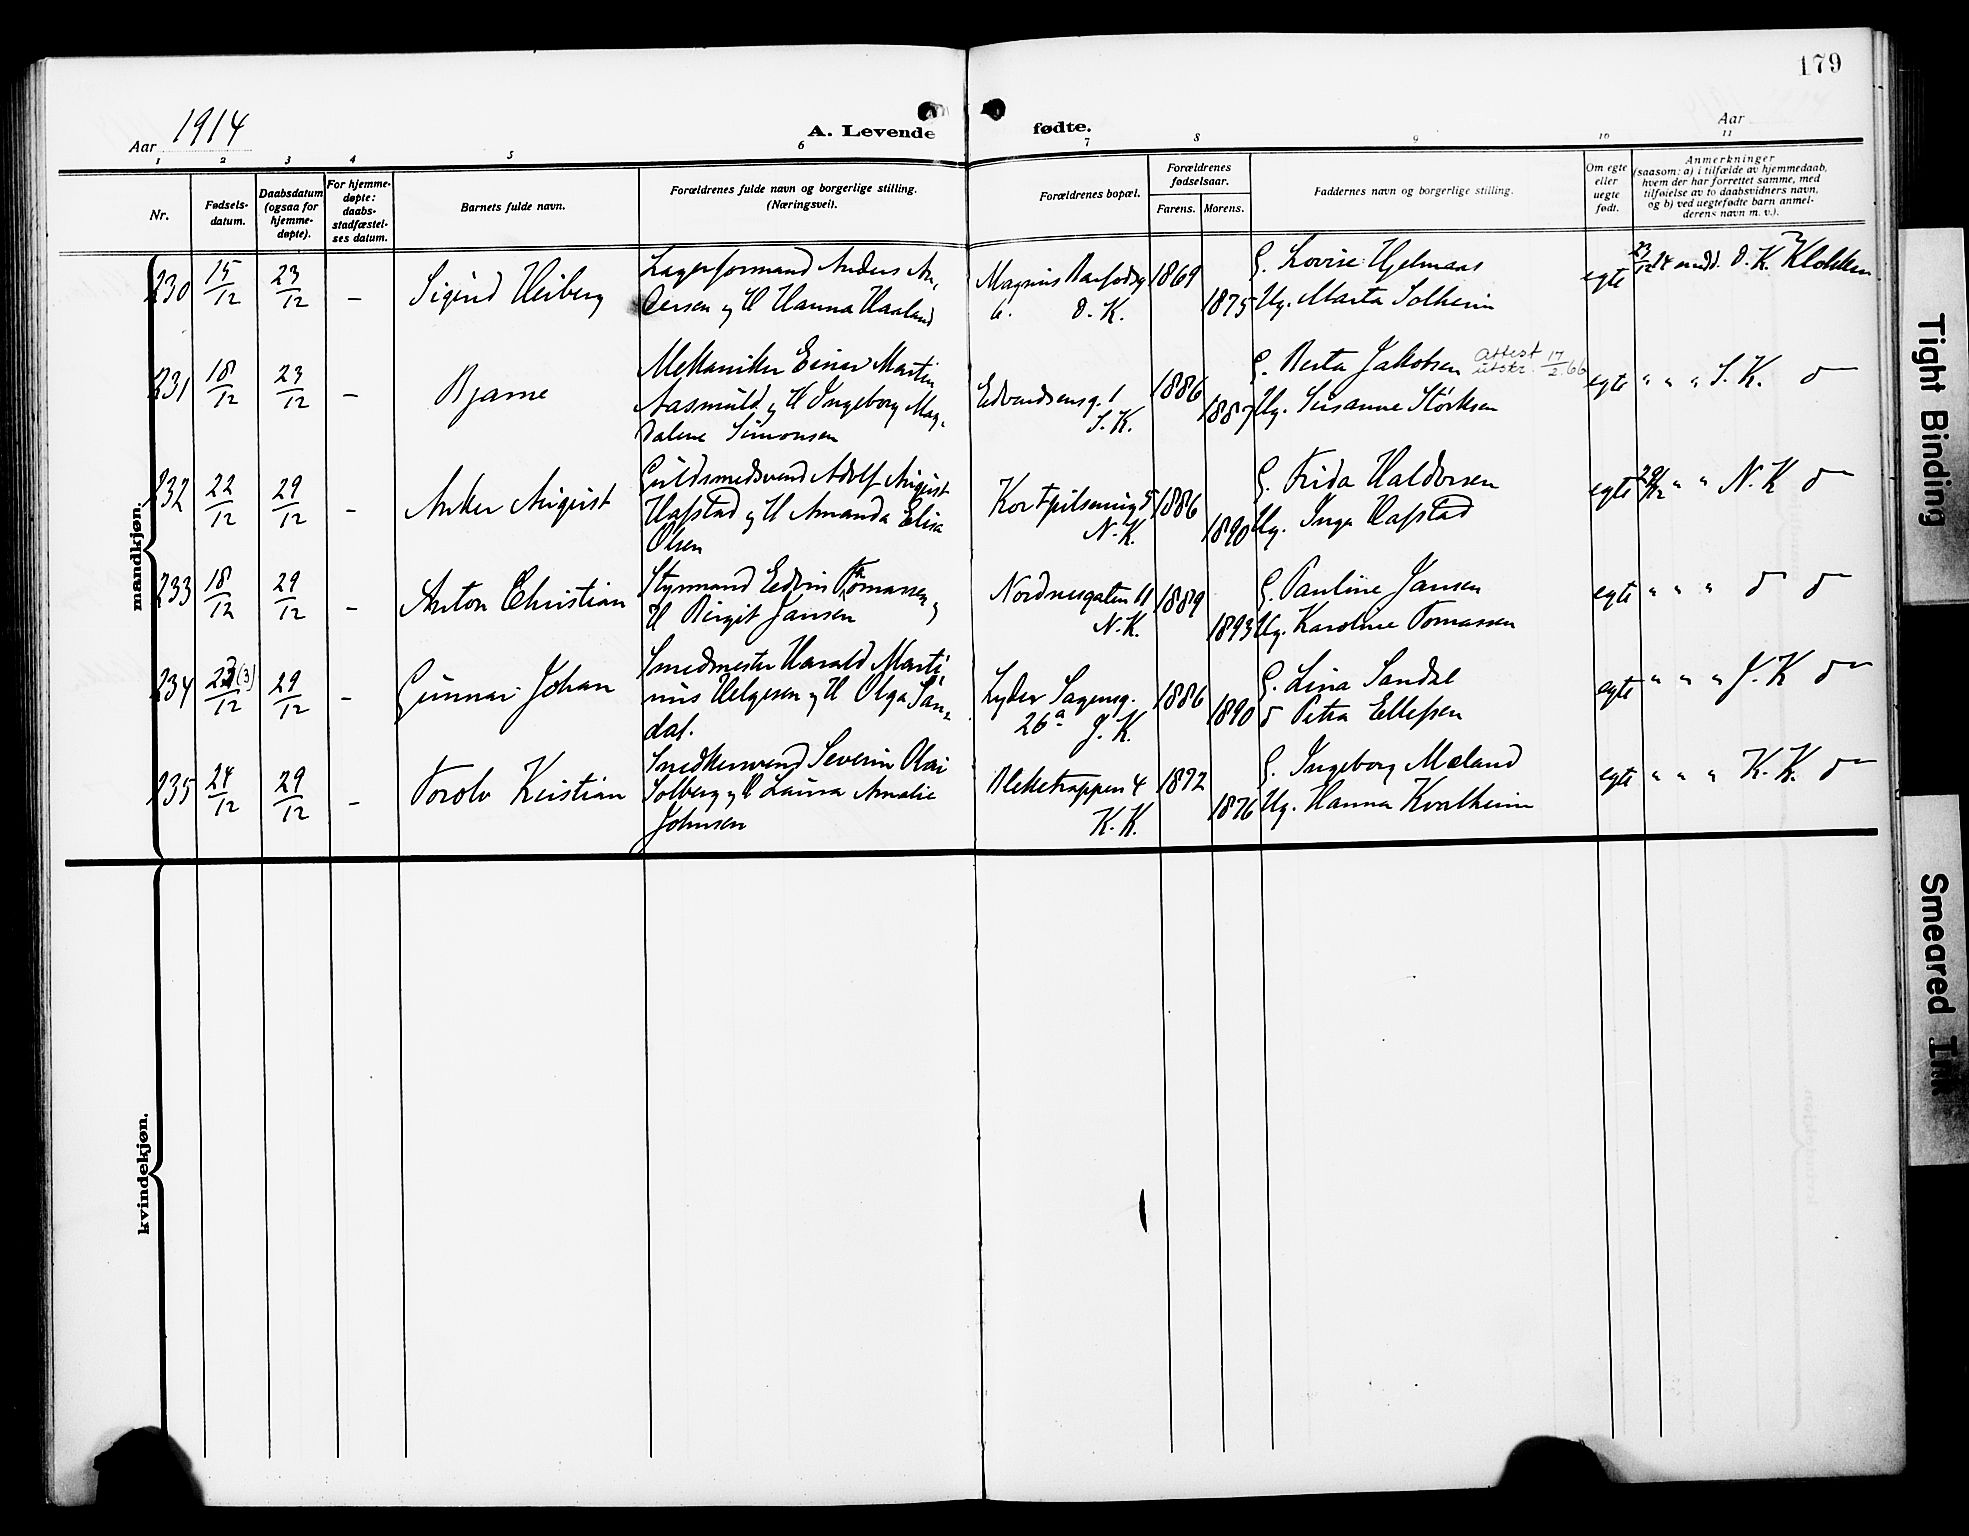 179
Aar 1914
A. Levende fødte.
Aar
1 2 3 4 5 6 7 8 9 10 11
Nr.
Fødsels-
datum.
Daabsdatum
(ogsaa for
hjemme-
døpte).
For hjemme-
døpte:
daabs-
stadfæstel-
ses datum.
Barnets fulde navn.
Forældrenes fulde navn og borgerlige stilling.
(Næringsvei).
Forældrenes bopæl.
Forældrenes
fødselsaar.
Farens. Morens.
Faddernes navn og borgerlige stilling.
Om egte
eller
uegte
født.
Anmerkninger
(saasom: a) i tilfælde av hjemmedaab,
hvem der har forrettet samme, med
tilføielse av to daabsvidners navn,
og b) ved uegtefødte barn anmel-
derens navn m. v.).
mandkjøn.
230 15/12 23/12 – Sigurd Heiberg
Lagerformand Anders An-
dersen og H Hanna Haaland
Magnus Barfodsg
6. D. K.
1869
1875
G. Lovise Hjelmaas
Ug. Marta Solheim
egte 23/12 14 medd. D. K. Klokken
231 18/12 23/12 – Bjarne
Mekaniker Einar Martin
Aasmuld og H Ingeborg Mag-
dalene Simonsen
Edvardsensg. 1
S. K.
1886
1887
G. Berta Jakobsen
Attest 17/2.66
utstr.
Ug. Susanne Størksen
egte " " " S. K. d
232 22/12 29/12 – Anker August
Guldsmedsvend Adolf August
Hafstad og H Amanda Elisa
Olsen
N. K.
1886
1890
G. Frida Haldorsen
Ug. Inga Hafstad
egte 29/12 " " N. K d
233 18/12 29/12 – Anton Christian
Styrmand Edvin Tomassen og
H Birgit Jansen
Nordnesgaten 11
N. K.
1889
1893
G. Pauline Jansen
Ug. Karoline Tomassen
egte " " " d d
234 23(3)/12 29/12 – Gunnar Johan
Smedmester Harald Marti-
nus Helgesen og H Olga San-
dal.
Lyder Sagensg.
26a J. K.
1886
1890
G. Lina Sandal
d Petra Ellefsen
egte " " " J. K d
235 24/12 29/12 – Torolv Kristian
Snedkersvend Severin Olai
Solberg og H Laura Amalie
Johnsen
Bleketrappen 4
K. K.
1872
1876
G. Ingeborg Mæland
Ug. Hanna Kvalheim
egte " " " K. K. d
kvindekjøn.
Tight Binding
Smeared Ink